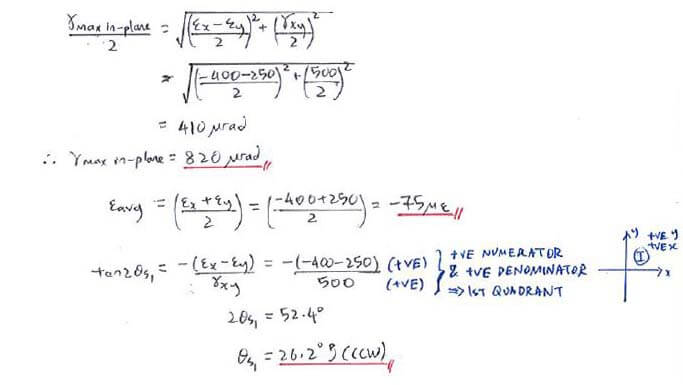 γmax in-plane / 2 = √((εx − εy)/2)² + (γxy/2)²
= √((−400−250)/2)² + (500/2)²
= 410 μrad
∴ γmax in-plane = 820 μrad //
εavg = (εx + εy / 2) = (−400+250 / 2) = −75με //
tan2θs1 = −(εx − εy) / γxy = −(−400−250) / 500 (+VE) (+VE) } +VE NUMERATOR & +VE DENOMINATOR ⇒ 1ST QUADRANT
y +VE y +VE x I x
2θs1 = 52.4°
θs1 = 26.2° (CCW) //